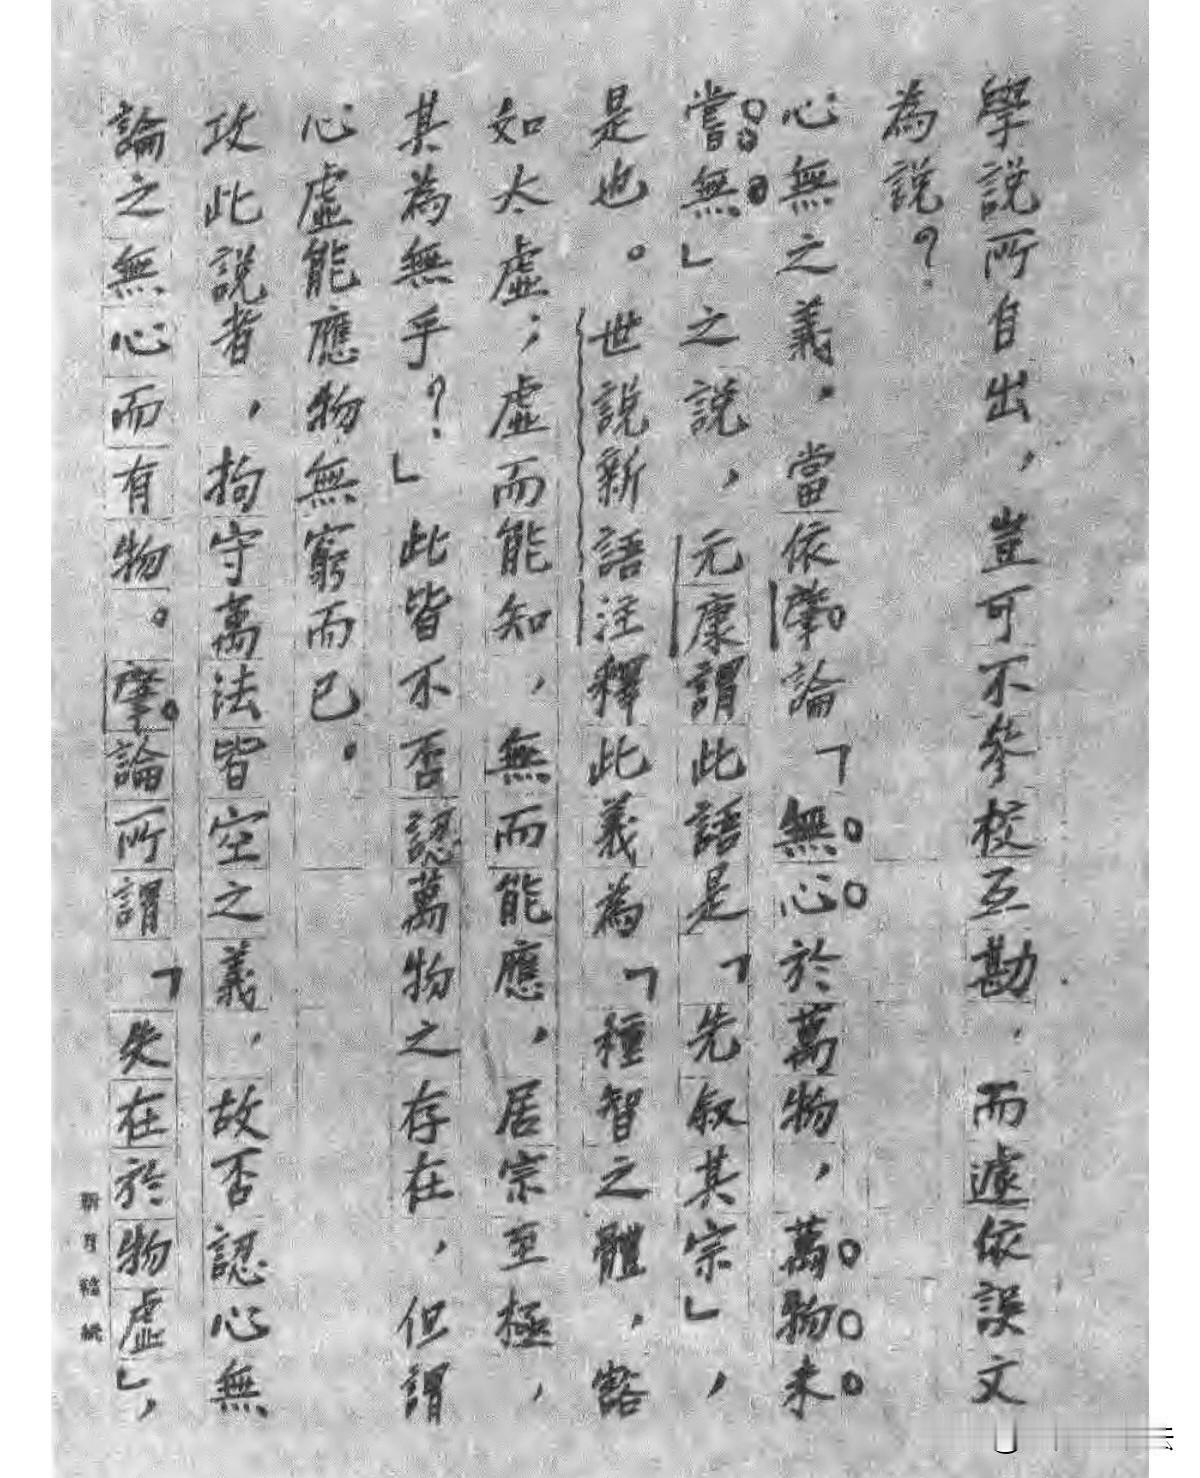 學說所自出，豈可不參校互勘，而遽依誤文
為說？
心無之義，當依肇論「無心於萬物，萬物未
嘗無」之說，元康謂此語是「先叙其宗」，
是也。世說新語注釋此義為「種智之體，豁
如太虛；虛而能知，無而能應，居宗至極，
其為無乎？」此皆不否認萬物之存在，但謂
心虛能應物無窮而已。
攻此說者，拘守萬法皆空之義，故否認心無
論之無心而有物。肇論所謂「失在於物虛」，
新月稿紙